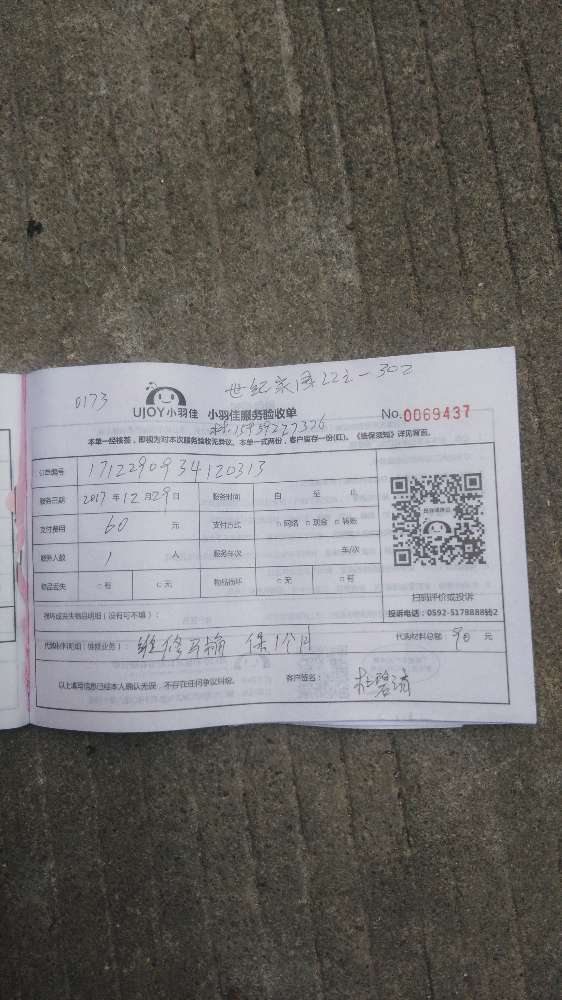 0173
UJOY小羽佳 小羽佳服务验收单 No.0069437
本单一经核签，即视为对本次服务验收无异议。本单一式两份，客户留存一份(红)。《维保须知》详见背面。
订单编号 1712290934120313
服务日期 2017 年 12 月 29 日 服务时间 自 至 止
支付费用 60 元 支付方式 □网络 □现金 □转账
服务人数 1 人 服务车次 车/次
物品丢失 □有 □无 物品损坏 □无 □有
扫码评价或投诉
投诉电话：0592-5178888转2
损坏或丢失物品明细（没有可不填）：
代购材料明细（维修业务）： 维修 保1个月 代购材料总额 90 元
以上填写信息已经本人确认无误，不存在任何争议纠纷。 客户签名：